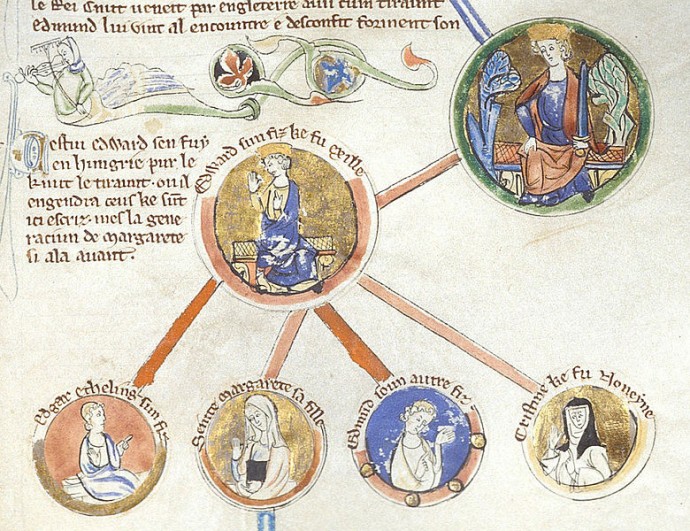 le Rei Cnut veneit par engleterre
edmund lui vint al encountre e desconfit forment son
Cestui edward sen fuy
en hungrie pur le
knut le tiraunt ou il
engendra ceus ke sunt
ici escriz mes la gene
raciun de margarete
si ala avant.
Edward sun fiz ke fu exille
Edgar etheling sun fiz
Seinte margarete sa fille
Edmund soun autre fiz
Cristine ke fu Noneyne